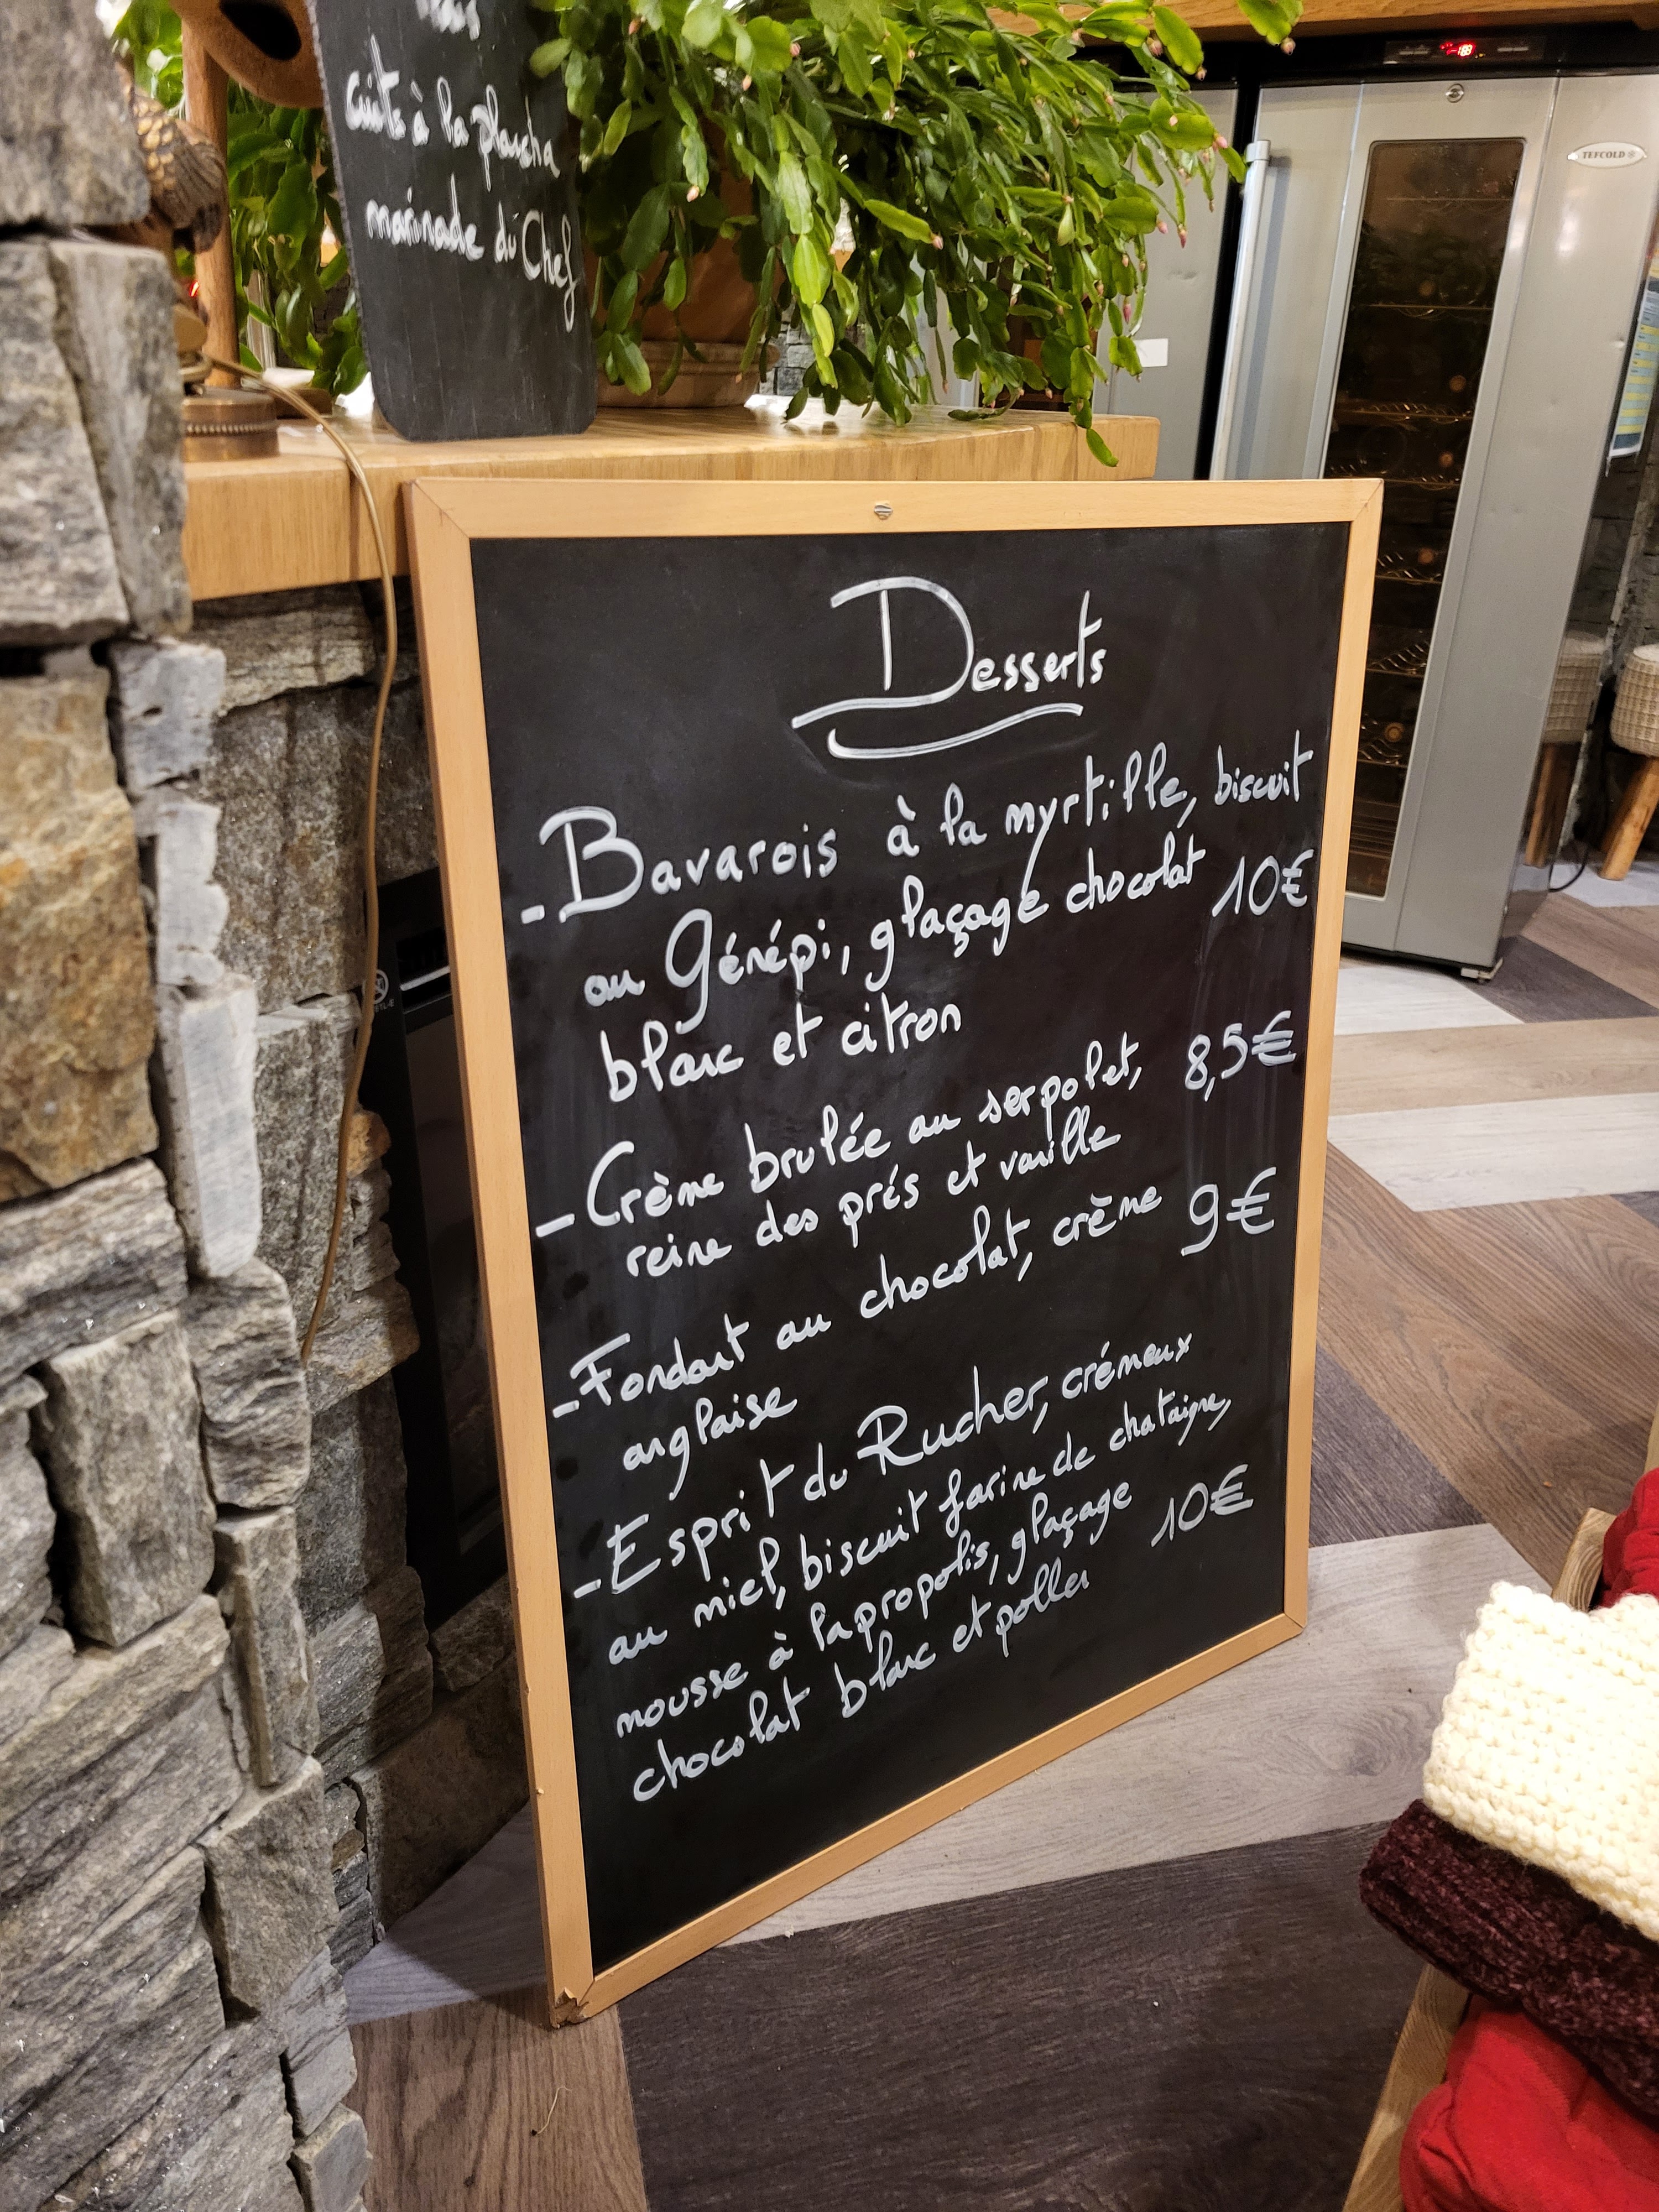 cuits à la plancha
marinade du Chef
TEFCOLD
Desserts
- Bavarois à la myrtille, biscuit
au Génépi, glaçage chocolat 10€
blanc et citron
- Crème brulée au serpolet, 8,5€
reine des prés et vanille
- Fondant au chocolat, crème 9€
anglaise
- Esprit du Rucher, crémeux
au miel, biscuit farine de chataigne,
mousse à la propolis, glaçage 10€
chocolat blanc et pollen